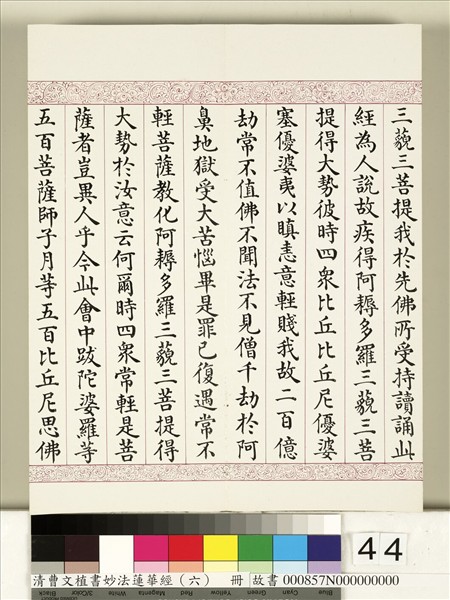 三藐三菩提我於先佛所受持讀誦此
經為人說故疾得阿耨多羅三藐三菩
提得大勢彼時四眾比丘比丘尼優婆
塞優婆夷以瞋恚意輕賤我故二百億
劫常不值佛不聞法不見僧千劫於阿
鼻地獄受大苦惱畢是罪已復遇常不
輕菩薩教化阿耨多羅三藐三菩提得
大勢於汝意云何爾時四眾常輕是菩
薩者豈異人乎今此會中跋陀婆羅等
五百菩薩師子月等五百比丘尼思佛
44
清曹文植書妙法蓮華經(六) 冊 故書 000857N000000000
Black 3/Color White Magenta Red Yellow Green Cyan Blue